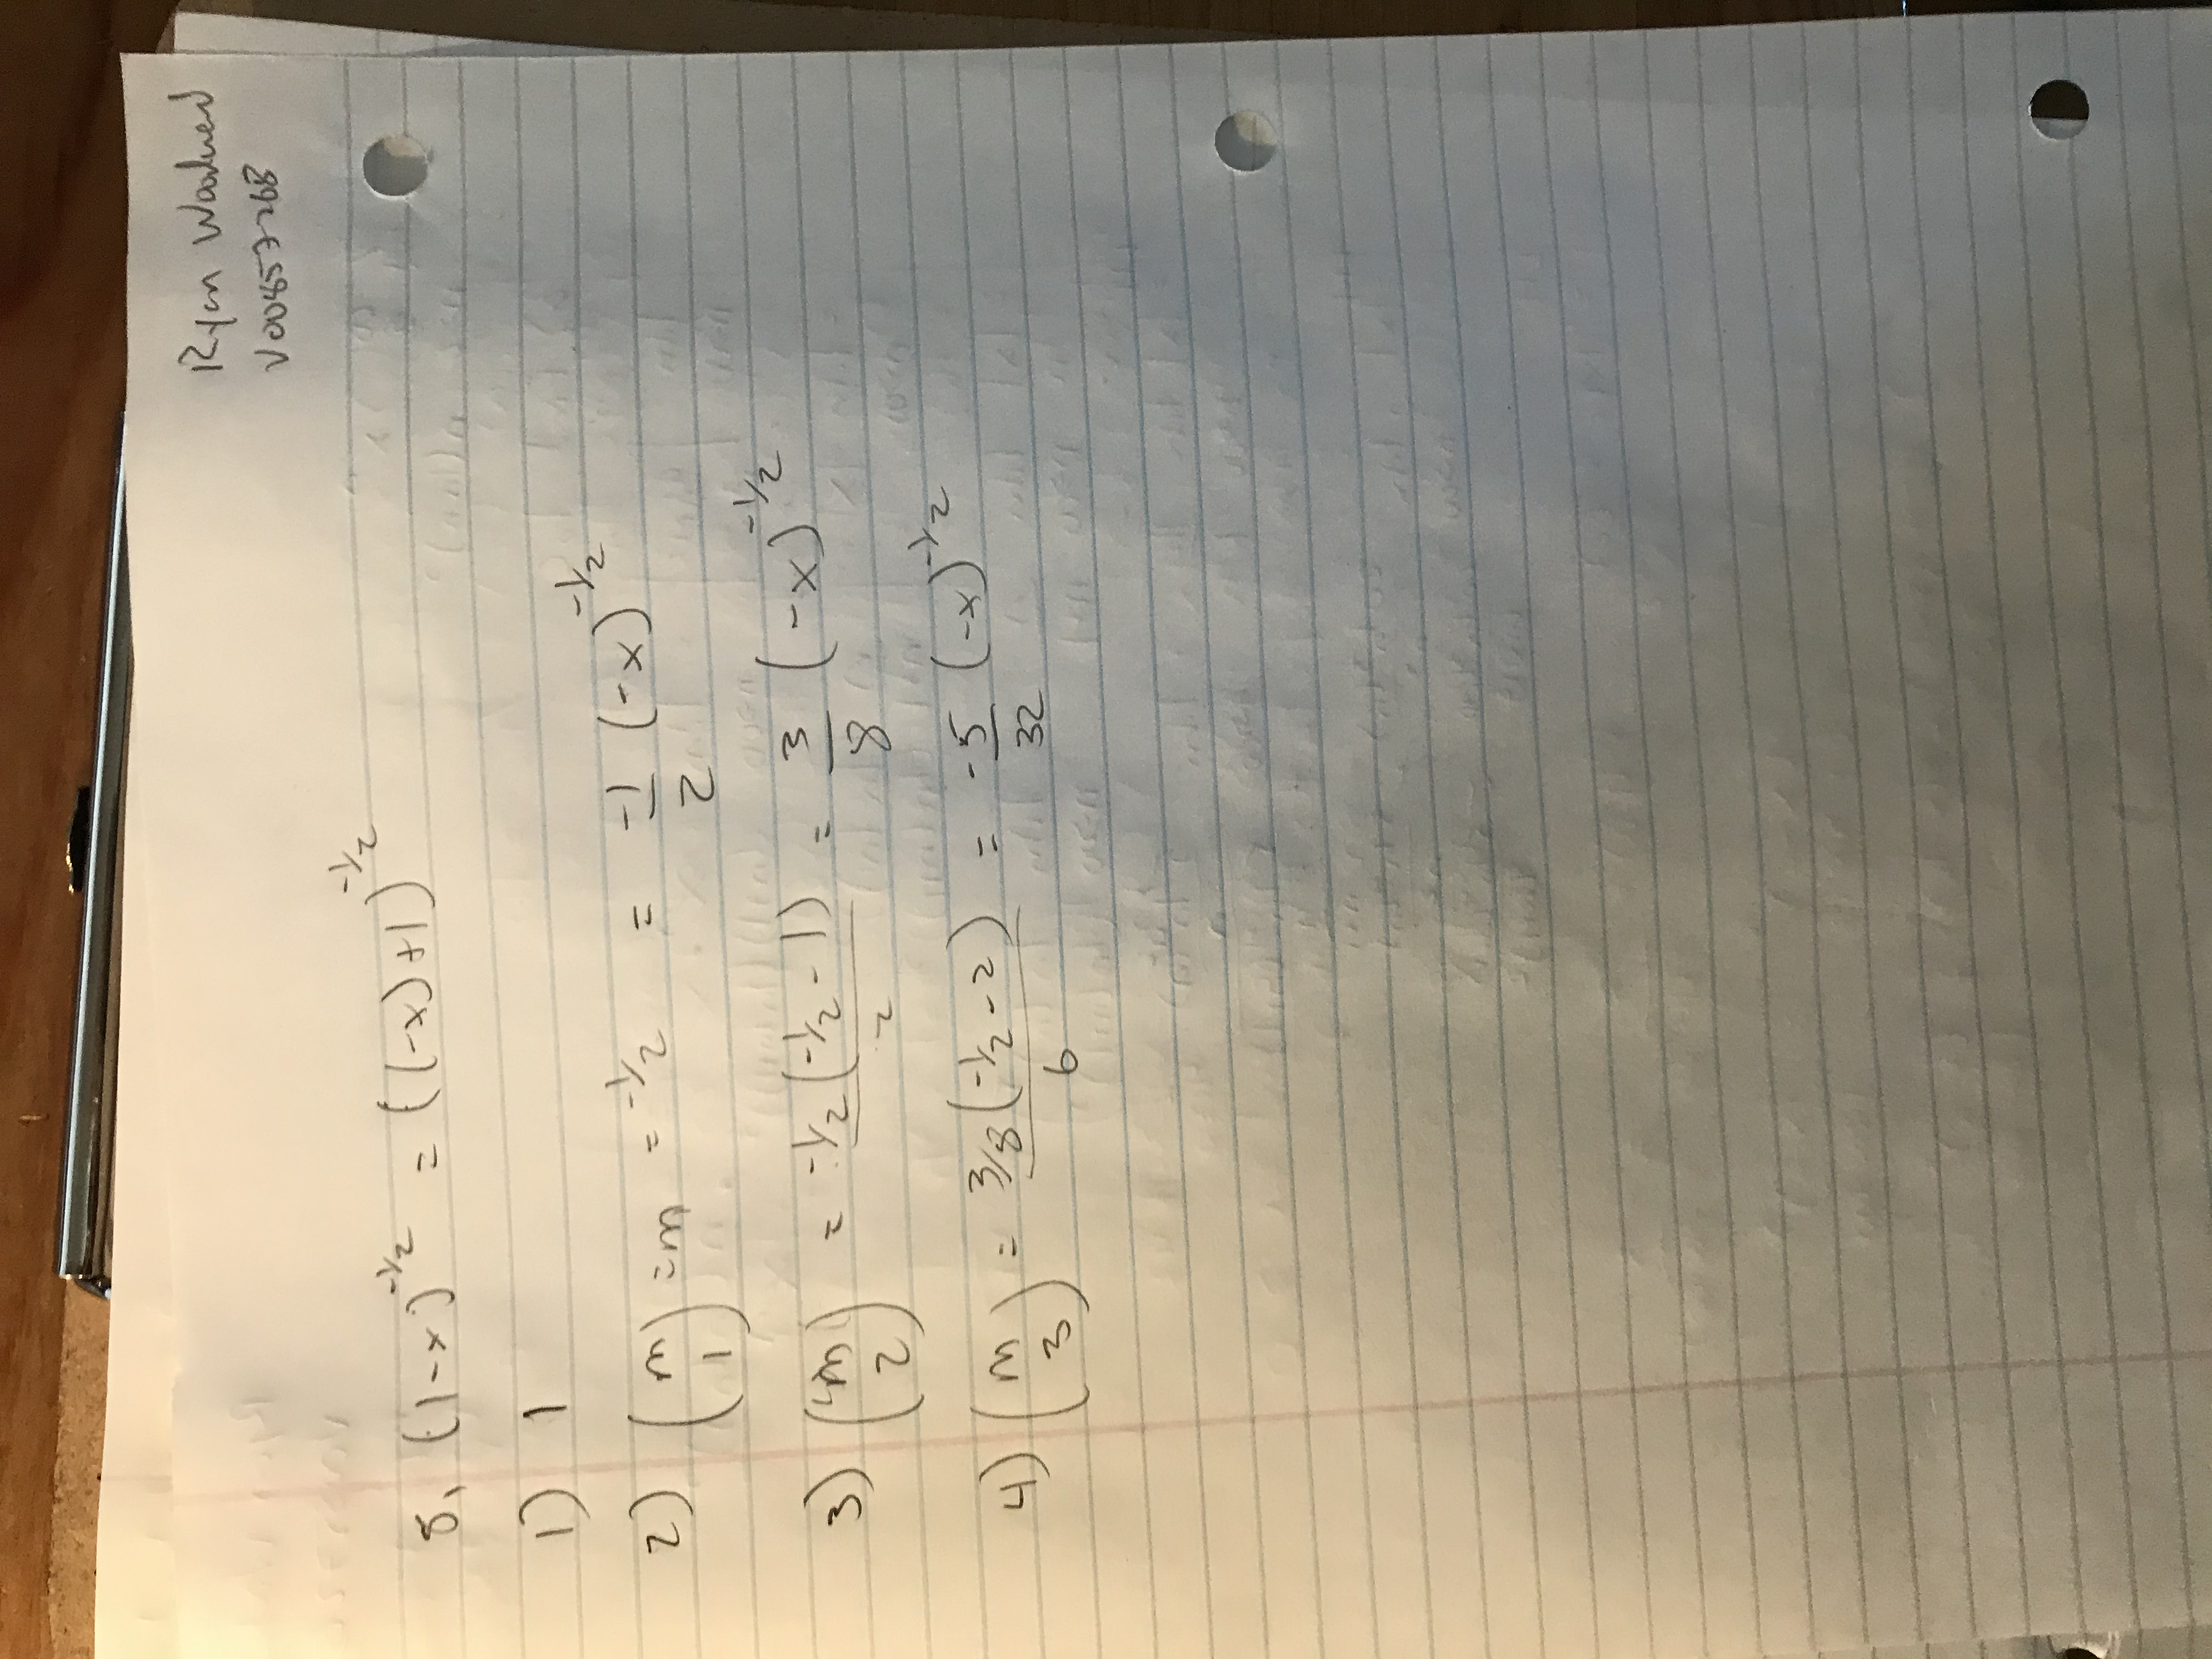 Ryan Woodward
V00857268
8. (1-x)^-1/2 = ((-x)+1)^-1/2
1) 1
2) (m 1) = m = -1/2 = -1/2 (-x)^-1/2
3) (m 2) = -1/2(-1/2 - 1)/2 = 3/8 (-x)^-1/2
4) (m 3) = 3/8(-1/2 - 2)/6 = -5/32 (-x)^-1/2